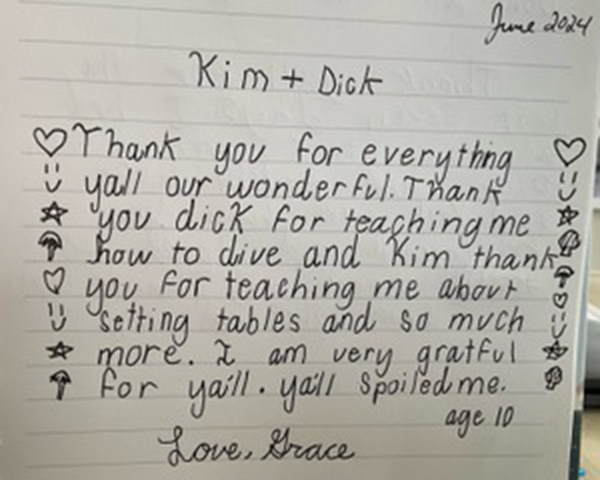 June 2024
Kim + Dick
Thank you for everything
yall our wonderful. Thank
you dick for teaching me
how to dive and Kim thank
you for teaching me about
setting tables and so much
more. I am very gratful
for ya'll. ya'll spoiled me.
age 10
Love, Grace